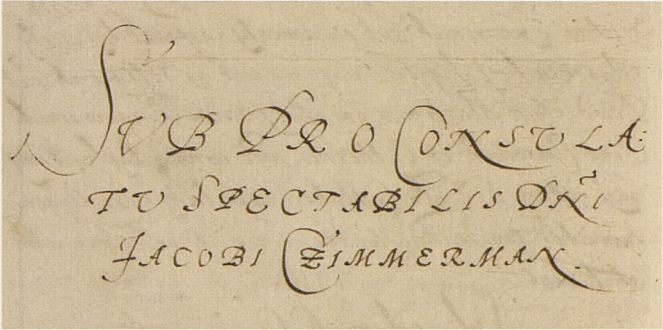 SUB PRO CONSULA:
TU SPECTABILIS DÑI
JACOBI CZIMMERMAN.